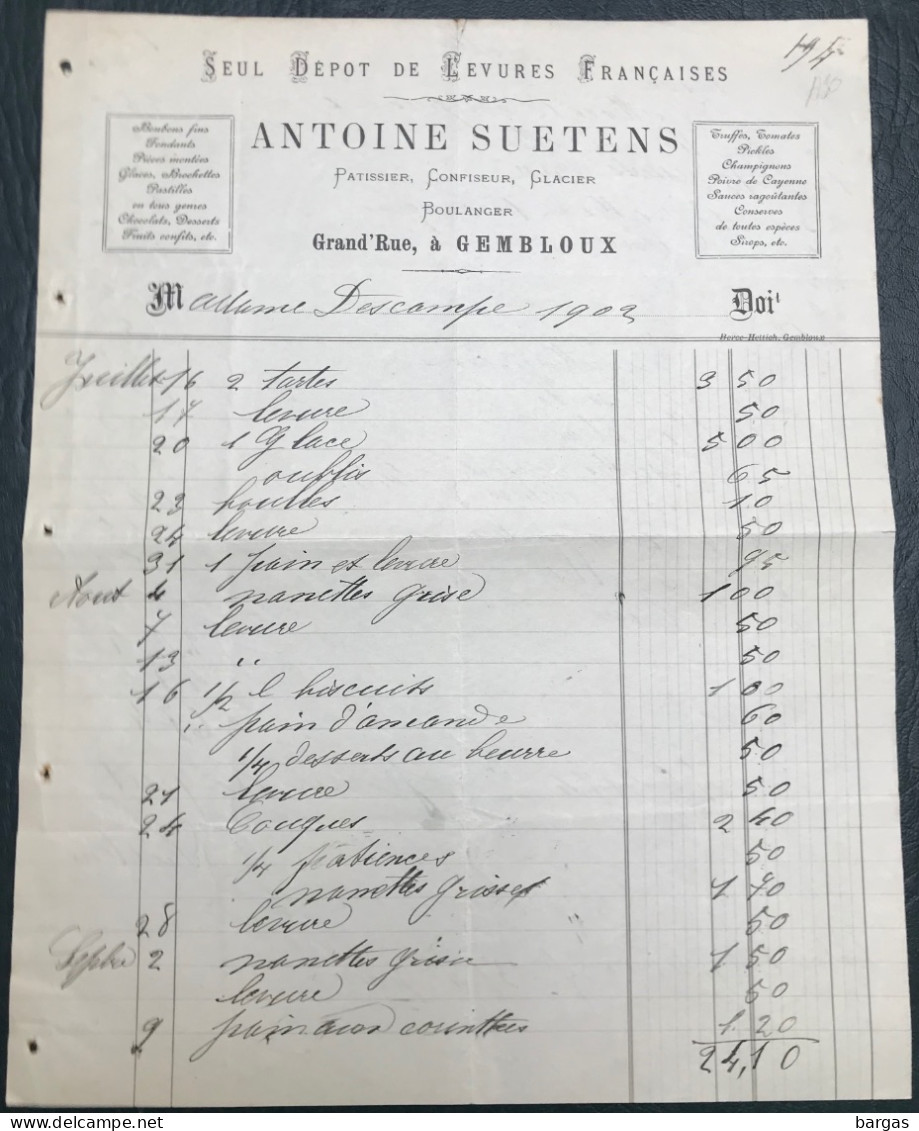 SEUL DÉPOT DE LEVURES FRANÇAISES
194
ANTOINE SUETENS
PATISSIER, CONFISEUR, GLACIER
BOULANGER
Grand'Rue, à GEMBLOUX
Bonbons fins
Fondants
Pièces montées
Glaces, Brochettes
Pastilles
en tous genres
Chocolats, Desserts
Fruits confits, etc.
Truffes, Tomates
Pickles
Champignons
Poivre de Cayenne
Sauces ragoûtantes
Conserves
de toutes espèces
Sirops, etc.
Madame Descampe 1902 Doit
Gembloux
Juillet 16 2 tartes 3 50
17 levure 50
20 1 Glace 5 00
oublis 65
23 boules 10
24 levure 50
31 1 pain et levure 95
Aout 4 nanettes grise 1 00
7 levure 50
13 " 50
16 1/2 l biscuits 1 00
" pain d'amande 60
1/4 desserts au beurre 50
21 levure 50
24 Couques 2 40
1/4 patiences 50
nanettes grises 1 70
28 levure 50
Septbre 2 nanettes grise 1 50
levure 50
9 pain aux corinthes 1 20
24,10
bargas